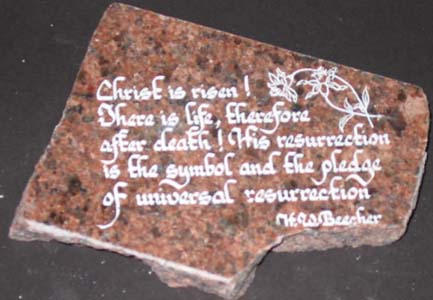 Christ is risen!
There is life, therefore
after death! His resurrection
is the symbol and the pledge
of universal resurrection
H.W.Beecher